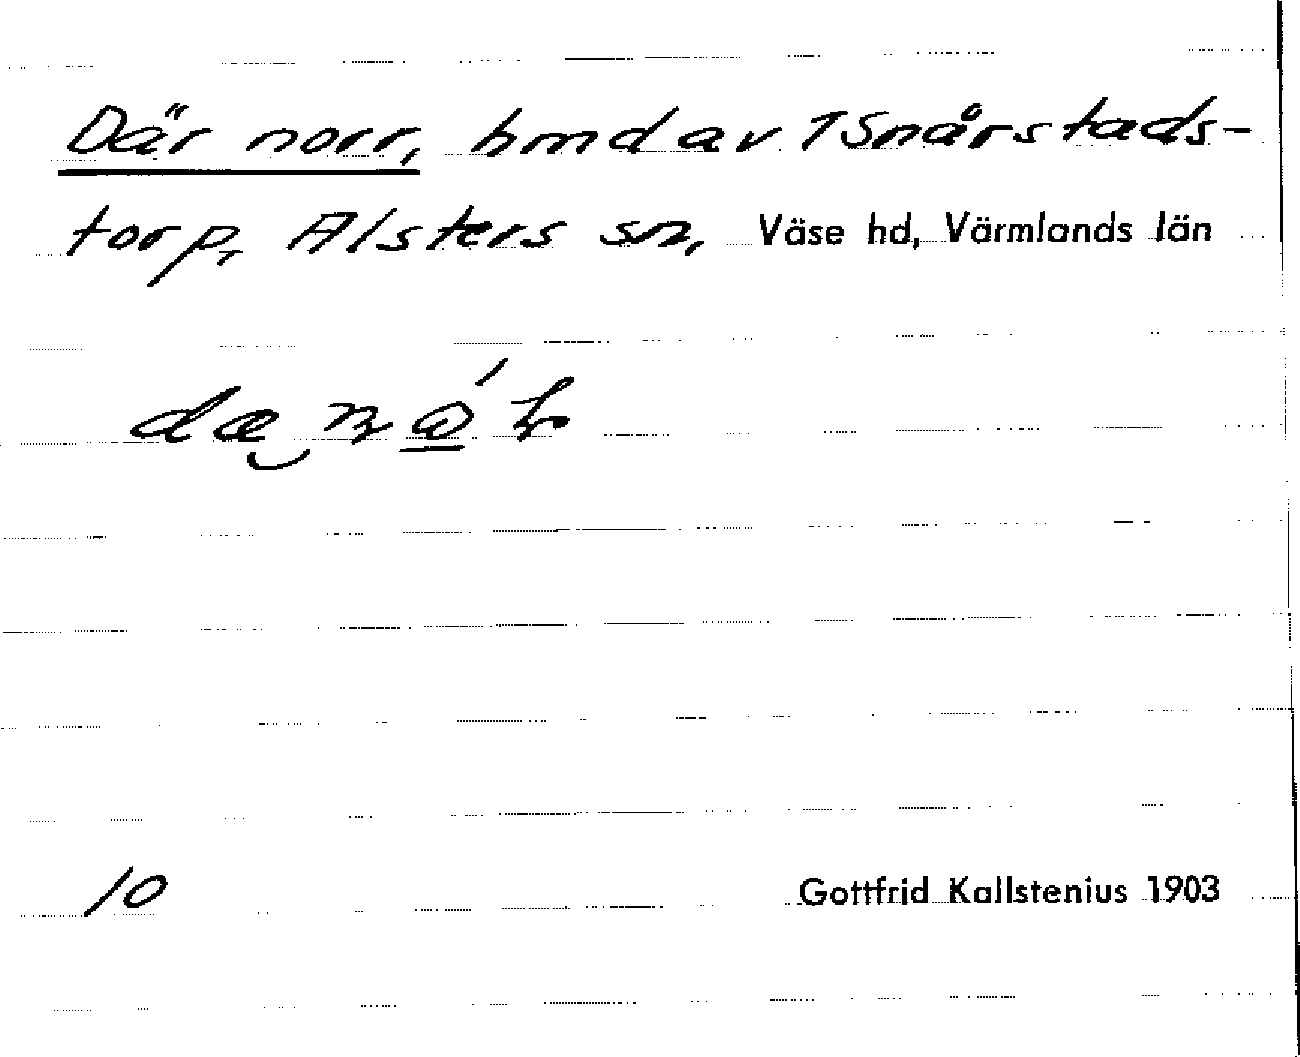 Där norr, hmd av 1 Snårstads-
torp, Alsters sn, Väse hd, Värmlands län
10
Gottfrid Kallstenius 1903